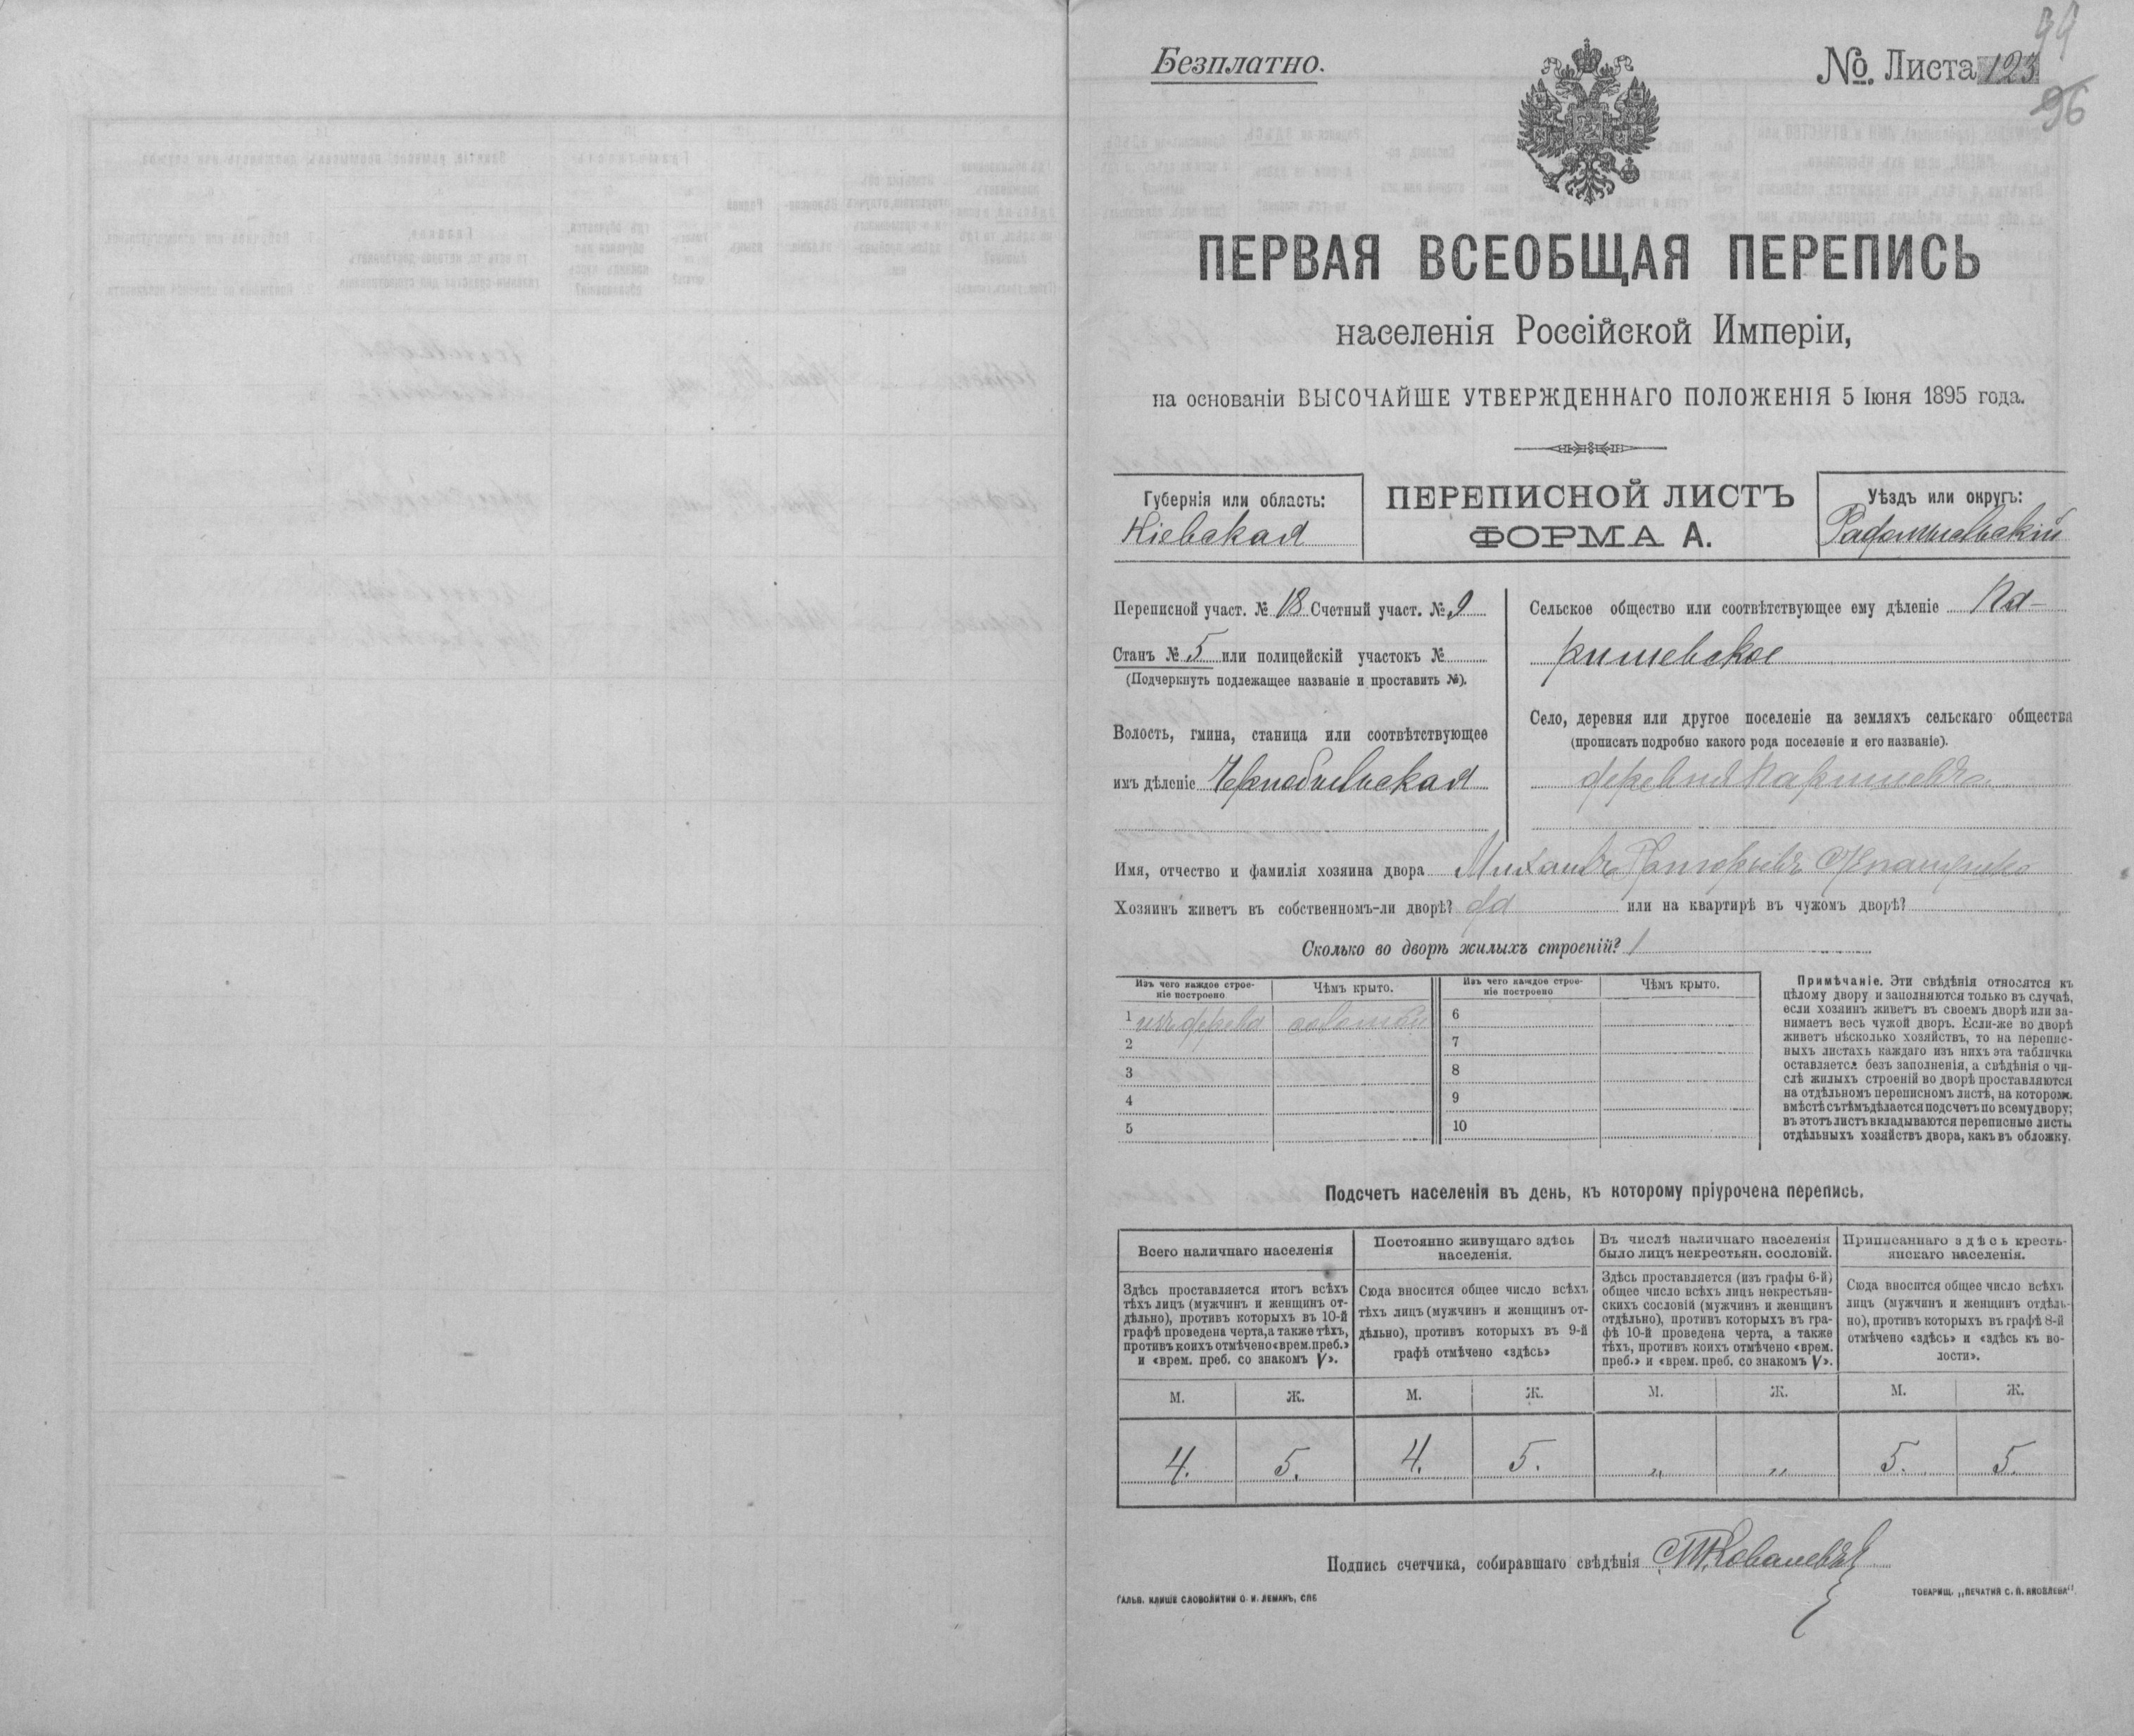 99
Безплатно.
№. Листа 123
96
ПЕРВАЯ ВСЕОБЩАЯ ПЕРЕПИСЬ
населенія Россійской Имперіи,
на основаніи ВЫСОЧАЙШЕ УТВЕРЖДЕННАГО ПОЛОЖЕНІЯ 5 Іюня 1895 года.
Губернія или область:
Кіевская
ПЕРЕПИСНОЙ ЛИСТЪ
ФОРМА А.
Уѣздъ или округъ:
Радомысльскій
Переписной участ. № 18 Счетный участ. № 9
Станъ № 5 или полицейскій участокъ №
(Подчеркнуть подлежащее названіе и проставить №).
Волость, гмина, станица или соотвѣтствующее
имъ дѣленіе Чернобыльская
Сельское общество или соотвѣтствующее ему дѣленіе Па-
ришевское
Село, деревня или другое поселеніе на земляхъ сельскаго общества
(прописать подробно какого рода поселеніе и его названіе).
деревня Паришевъ
Имя, отчество и фамилія хозяина двора Михаилъ
Хозяинъ живетъ въ собственномъ-ли дворѣ? да или на квартирѣ въ чужомъ дворѣ?
Сколько во дворѣ жилыхъ строеній? 1
Изъ чего каждое строе-
ніе построено
Чѣмъ крыто.
Изъ чего каждое строе-
ніе построено
Чѣмъ крыто.
1 изъ дерева соломой 6
2 7
3 8
4 9
5 10
Примѣчаніе. Эти свѣдѣнія относятся къ
цѣлому двору и заполняются только въ случаѣ,
если хозяинъ живетъ въ своемъ дворѣ или за-
нимаетъ весь чужой дворъ. Если-же во дворѣ
живетъ нѣсколько хозяйствъ, то на перепис-
ныхъ листахъ каждаго изъ нихъ эта табличка
оставляется безъ заполненія, а свѣдѣнія о чи-
слѣ жилыхъ строеній во дворѣ проставляются
на отдѣльномъ переписномъ листѣ, на которомъ
вмѣстѣ съ тѣмъ дѣлается подсчетъ по всему двору;
въ этотъ листъ вкладываются переписные листы
отдѣльныхъ хозяйствъ двора, какъ въ обложку.
Подсчетъ населенія въ день, къ которому пріурочена перепись.
Всего наличнаго населенія
Здѣсь проставляется итогъ всѣхъ
тѣхъ лицъ (мужчинъ и женщинъ от-
дѣльно), противъ которыхъ въ 10-й
графѣ проведена черта, а также тѣхъ,
противъ коихъ отмѣчено «врем. преб.»
и «врем. преб. со знакомъ V».
Постоянно живущаго здѣсь
населенія.
Сюда вносится общее число всѣхъ
тѣхъ лицъ (мужчинъ и женщинъ от-
дѣльно), противъ которыхъ въ 9-й
графѣ отмѣчено «здѣсь»
Въ числѣ наличнаго населенія
было лицъ некрестьян. сословій.
Здѣсь проставляется (изъ графы 6-й)
общее число всѣхъ лицъ некрестьян-
скихъ сословій (мужчинъ и женщинъ
отдѣльно), противъ которыхъ въ гра-
фѣ 10-й проведена черта, а также
тѣхъ, противъ коихъ отмѣчено «врем.
преб.» и «врем. преб. со знакомъ V».
Приписаннаго здѣсь кресть-
янскаго населенія.
Сюда вносится общее число всѣхъ
лицъ (мужчинъ и женщинъ отдѣль-
но), противъ которыхъ въ графѣ 8-й
отмѣчено «здѣсь» и «здѣсь къ во-
лости».
М. Ж. М. Ж. М. Ж. М. Ж.
4. 5. 4. 5. „ „ 5. 5.
Подпись счетчика, собиравшаго свѣдѣнія
ГАЛЬВ. КЛИШЕ СЛОВОЛИТНИ О. И. ЛЕМАНЪ, СПБ
ТОВАРИЩ. „ПЕЧАТНЯ С. П. ЯКОВЛЕВА".